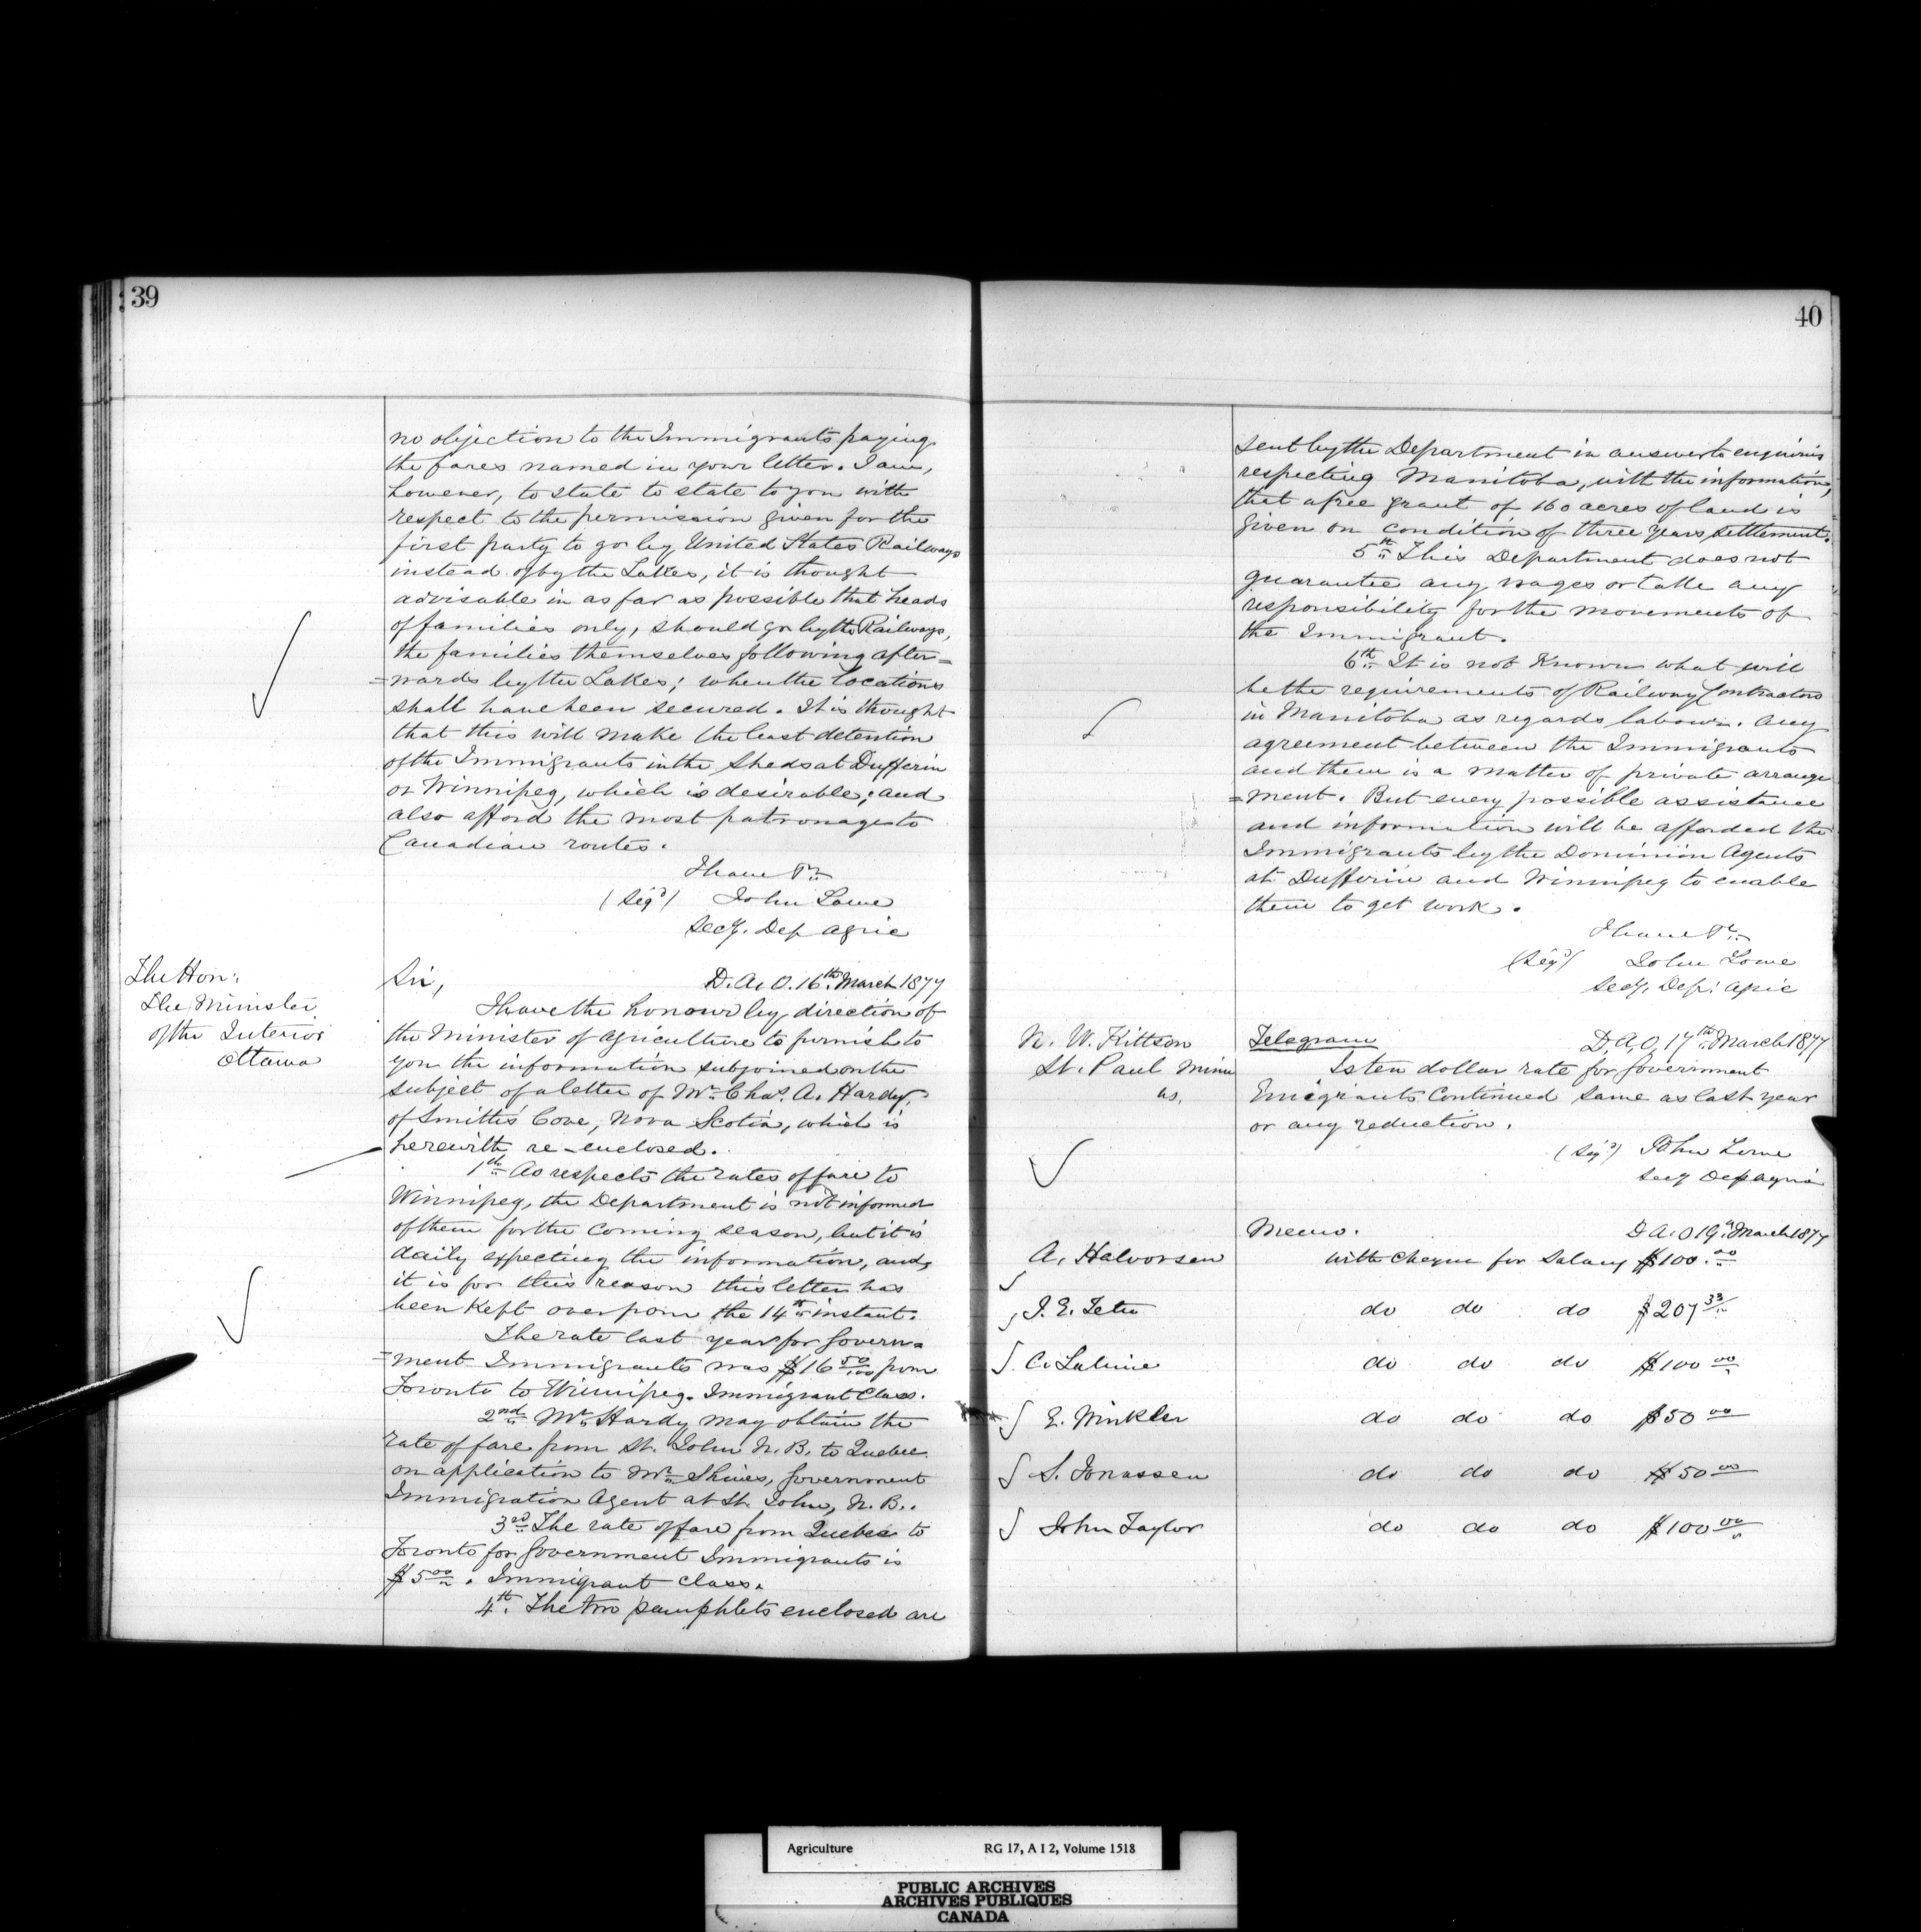 39
no objection to the Immigrants paying
the fares named in your letter. I am,
however, to state to state to you with
respect to the permission given for the
first party to go by United States Railways
instead of by the Lakes, it is thought
advisable in as far as possible that heads
of families only, should go by the Railways,
the families themselves following after=
=wards by the Lakes; when the locations
shall have been secured. It is thought
that this will make the least detention
of the Immigrants in the Sheds at Dufferin
or Winnipeg, which is desirable; and
also afford the most patronage to
Canadian routes.
I have &c
(Sigd) John Lowe
Secy. Dep Agric
The Hon:
The Minister
of the Interior
Ottawa
Sir, D. A. O. 16th March 1877
I have the honour by direction of
the Minister of Agriculture to furnish to
you the information subjoined on the
subject of a letter of Mr. Chas. A. Hardy,
of Smith's Cove, Nova Scotia, which is
herewith re-enclosed.
1st As respects the rates of fare to
Winnipeg, the Department is not informed
of them for the coming season, but it is
daily expecting the information, and
it is for this reason this letter has
been kept over from the 14th instant.
The rate last year for Govern=
=ment Immigrants was $16 50/100 from
Toronto to Winnipeg. Immigrant Class.
2nd Mr. Hardy may obtain the
rate of fare from St. John N. B. to Quebec
on application to Mr. Shives, Government
Immigration Agent at St. John, N. B..
3rd The rate of fare from Quebec to
Toronto for Government Immigrants is
$5 00. Immigrant class.
4th. The two pamphlets enclosed are
40
sent by the Department in answer to enquiries
respecting Manitoba, with the information,
that a free grant of 160 acres of land is
given on condition of three years settlement.
5th This Department does not
guarantee any wages or take any
responsibility for the movements of
the Immigrant.
6th It is not known what will
be the requirements of Railway Contractors
in Manitoba as regards labour. Any
agreement between the Immigrants
and them is a matter of private arrange
=ment. But every possible assistance
and information will be afforded the
Immigrants by the Dominion Agents
at Dufferin and Winnipeg to enable
them to get work.
I have &c
(Sigd) John Lowe
Secy. Dep: Agric
N. W. Kittson
St. Paul Minn
us.
Telegram D. A. O. 17th March 1877
Is ten dollar rate for Government
Emigrants Continued same as last year
or any reduction.
(Sigd) John Lowe
Secy Dep agric
Memo. D A. O 19th March 1877
A. Halvorsen with cheque for Salary $100.00
J. E. Tetu do do do $207 33
C. Lalime do do do $100 00
E. Winkler do do do $50 00
S. Jonassen do do do $50 00
John Taylor do do do $100 00
Agriculture RG 17, A I 2, Volume 1518
PUBLIC ARCHIVES
ARCHIVES PUBLIQUES
CANADA